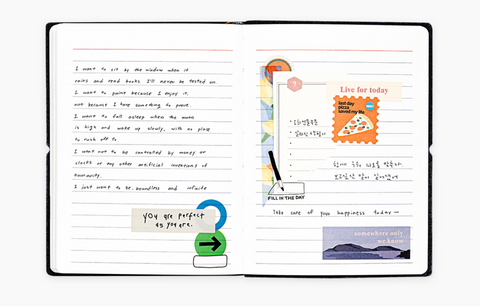 I want to sit by the window when it
rains and read books I'll never be tested on.
I want to paint because I enjoy it,
not because I have something to prove.
I want to fall asleep when the moon
is high and wake up slowly, with no place
to rush off to.
I want not to be controlled by money or
clocks or any other artificial inventions of
humanity.
I just want to be boundless and infinite
you are perfect
as you are.
Live for today
last day
pizza
loved my life
FILL IN THE DAY
Take care of your happiness today
somewhere only
we know